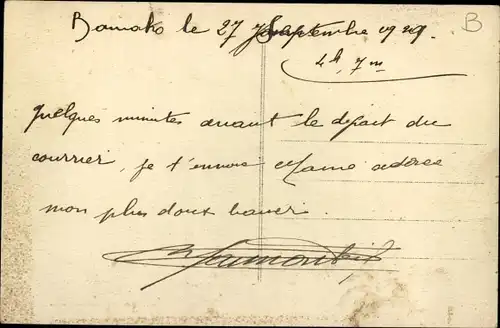 Bamako le 27 Septembre 1929.
4h, 7m
quelques minutes avant le départ du
courrier, je t'envoie Mamie adorée
mon plus doux baiser.
B